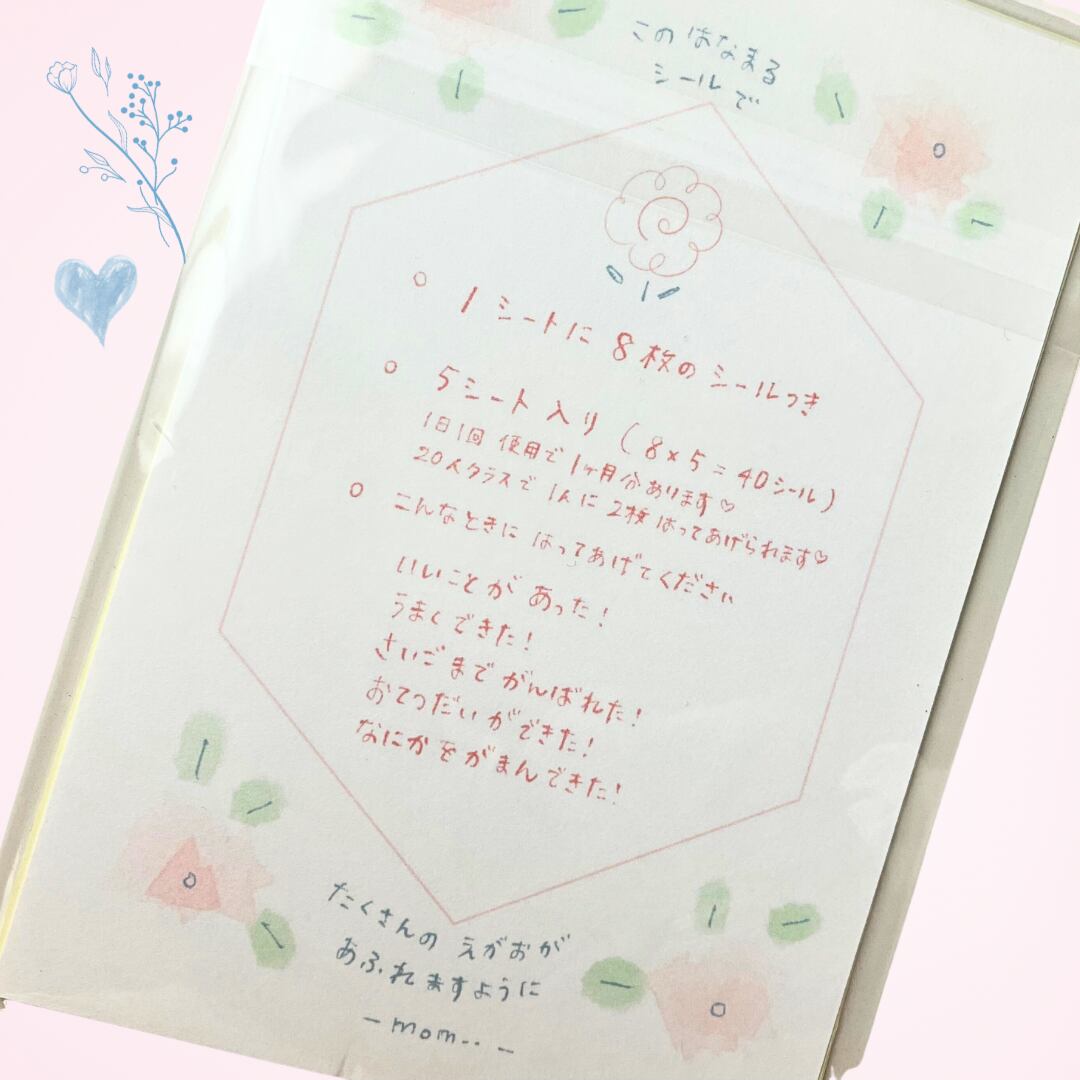 このはなまる
シールで
○ 1シートに8枚のシールつき
○ 5シート入り(8×5=40シール)
1日1回使用で1ヶ月分あります♡
20人クラスで1人に2枚はってあげられます♡
○ こんなときにはってあげてください
いいことがあった!
うまくできた!
さいごまでがんばれた!
おてつだいができた!
なにかをがまんできた!
たくさんのえがおが
あふれますように
-mom..-